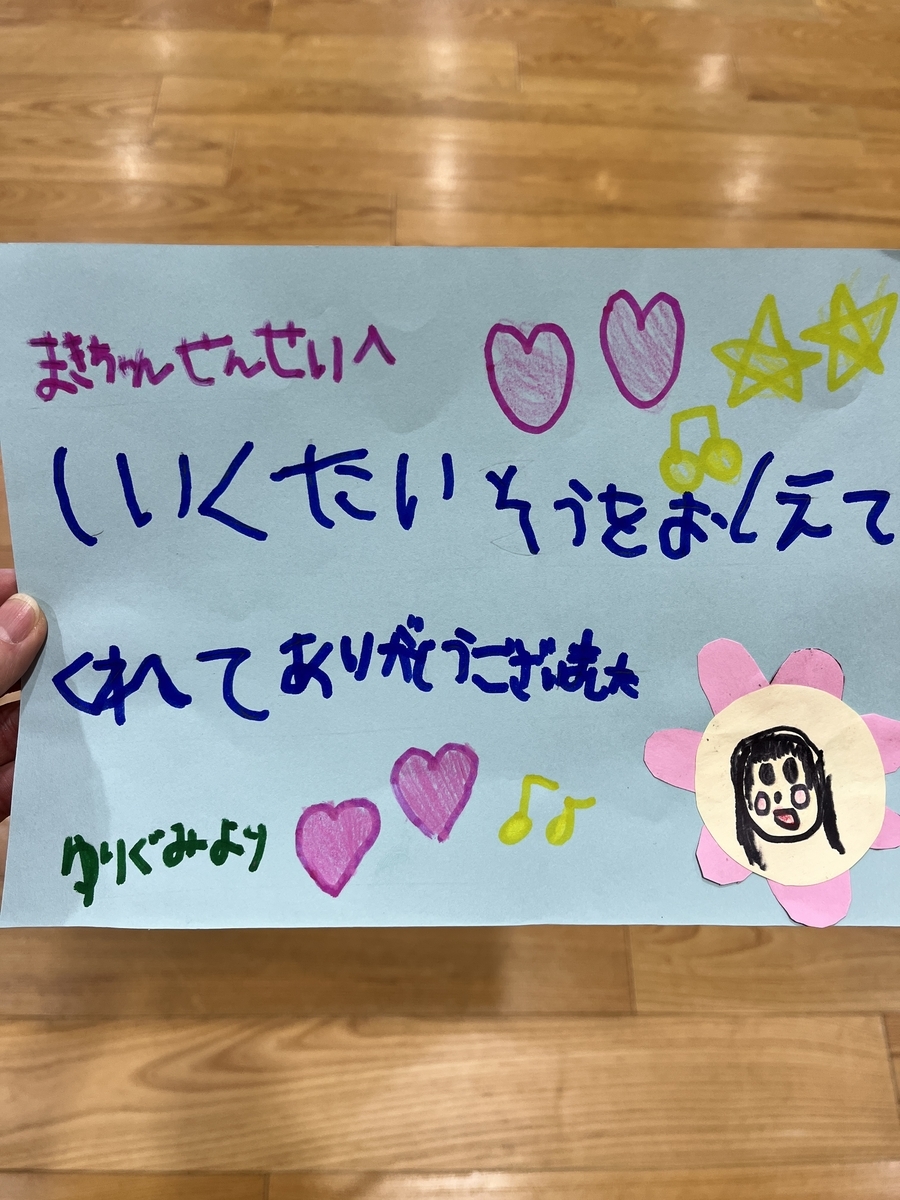 まきちゃんせんせいへ
いいくたいそうをおしえて
くれてありがとうございました
ゆりぐみより